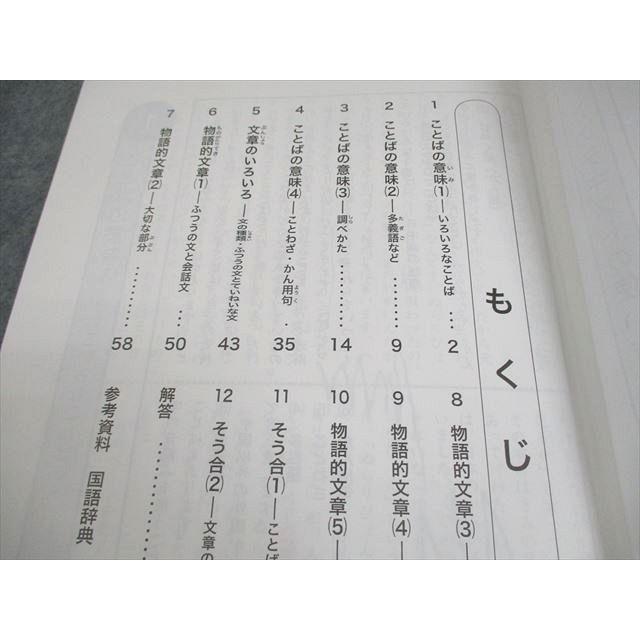 もくじ
1 ことばの意味(1)―いろいろなことば … 2
2 ことばの意味(2)―多義語など ……… 9
3 ことばの意味(3)―調べかた ………… 14
4 ことばの意味(4)―ことわざ・かん用句 . 35
5 文章のいろいろ―文の種類・ふつうの文とていねいな文 43
6 物語的文章(1)―ふつうの文と会話文 … 50
7 物語的文章(2)―大切な部分 ………… 58
8 物語的文章(3)―
9 物語的文章(4)―
10 物語的文章(5)―
11 そう合(1)―ことば
12 そう合(2)―文章の
解答 …………
参考資料 国語辞典